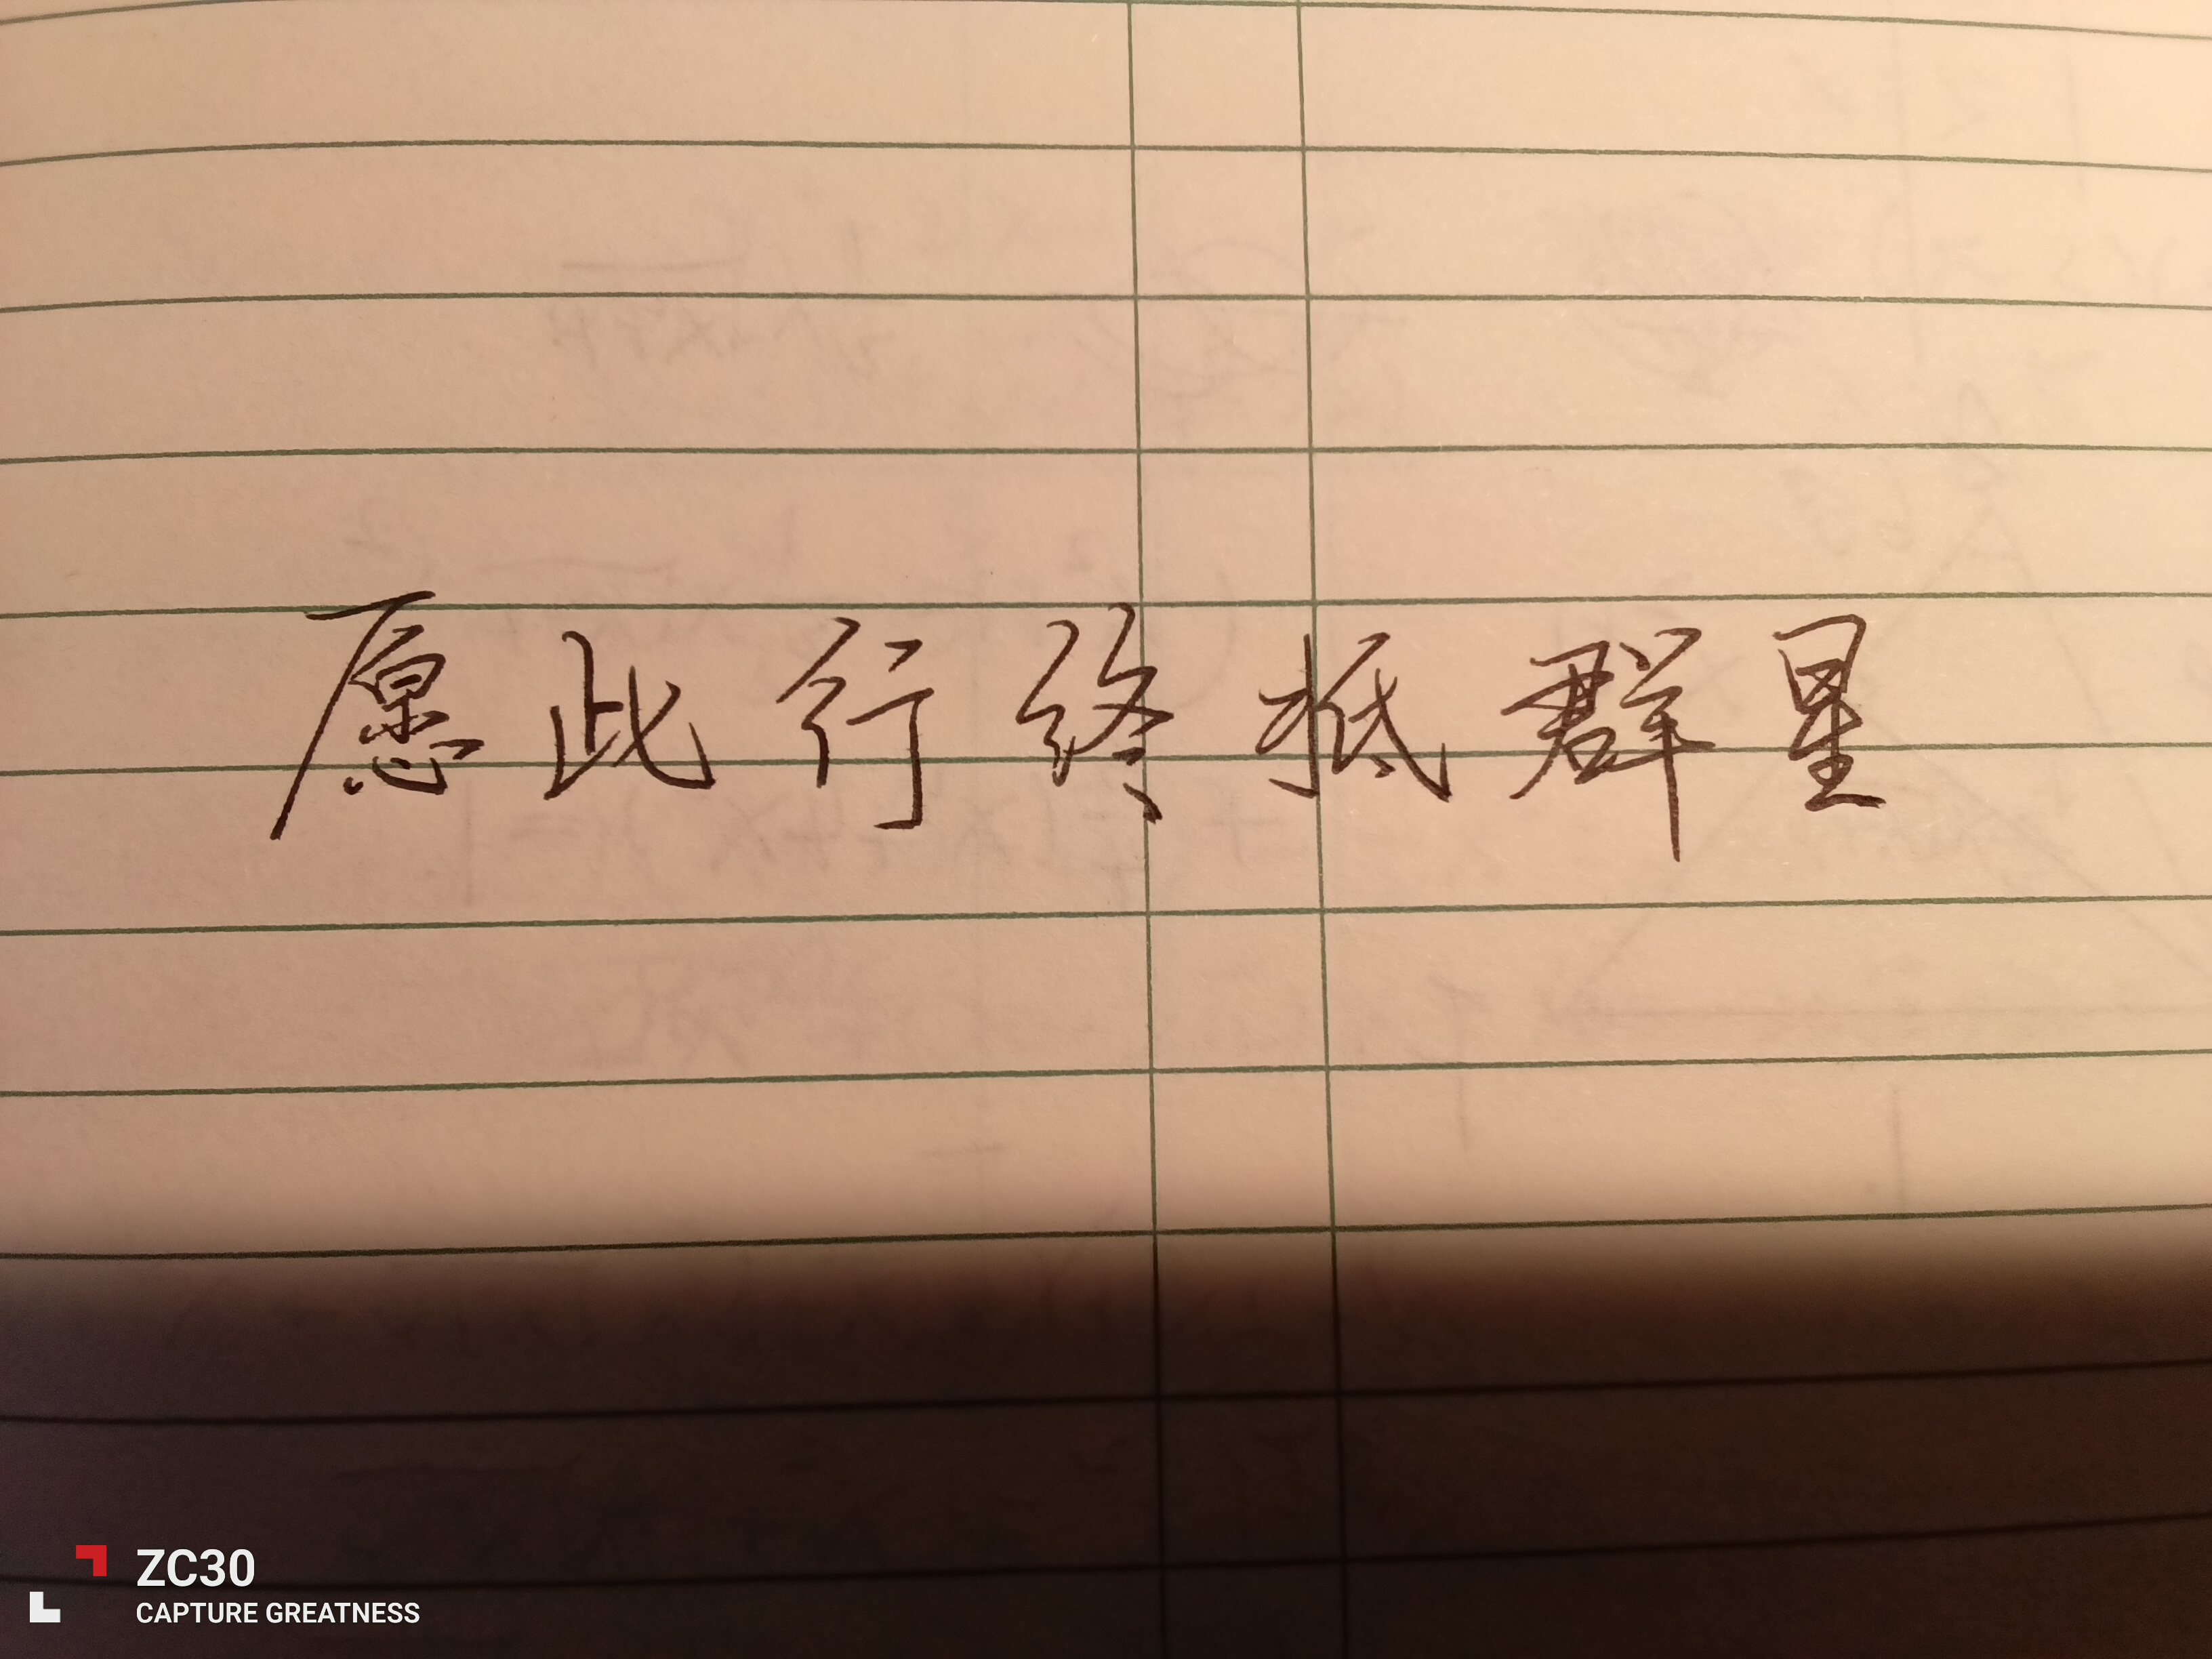 愿此行终抵群星
ZC30
CAPTURE GREATNESS